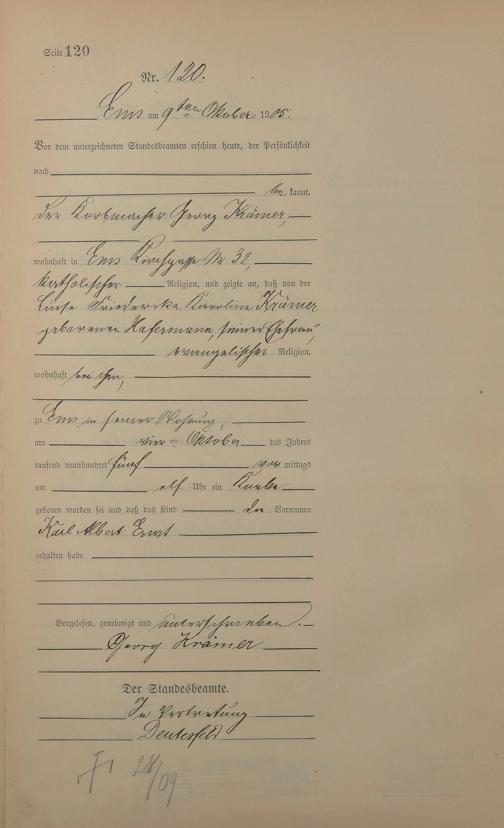 Seite 120
Nr. 120.
Ems am 9ten Oktober 1905.
Vor dem unterzeichneten Standesbeamten erschien heute, der Persönlichkeit
nach
be kannt,
der Korbmacher Georg Krämer,
wohnhaft in Ems Kirchgasse Nr 32,
katholischer Religion, und zeigte an, daß von der
Luise Friedericke Karoline Krämer
geborenen Hafermann, seiner Ehefrau,
evangelischer Religion,
wohnhaft bei ihm,
zu Ems in seiner Wohnung,
am vier ten Oktober des Jahres
tausend neunhundert fünf vor mittags
um elf Uhr ein Knabe
geboren worden sei und daß das Kind die Vornamen
Karl Albert Ernst
erhalten habe
Vorgelesen, genehmigt und unterschrieben.
Georg Krämer
Der Standesbeamte.
In Vertretung
28/09